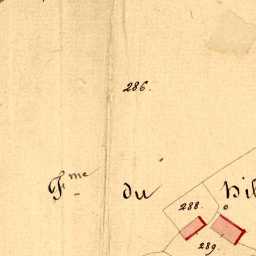 286.
Fme du
288.
289.